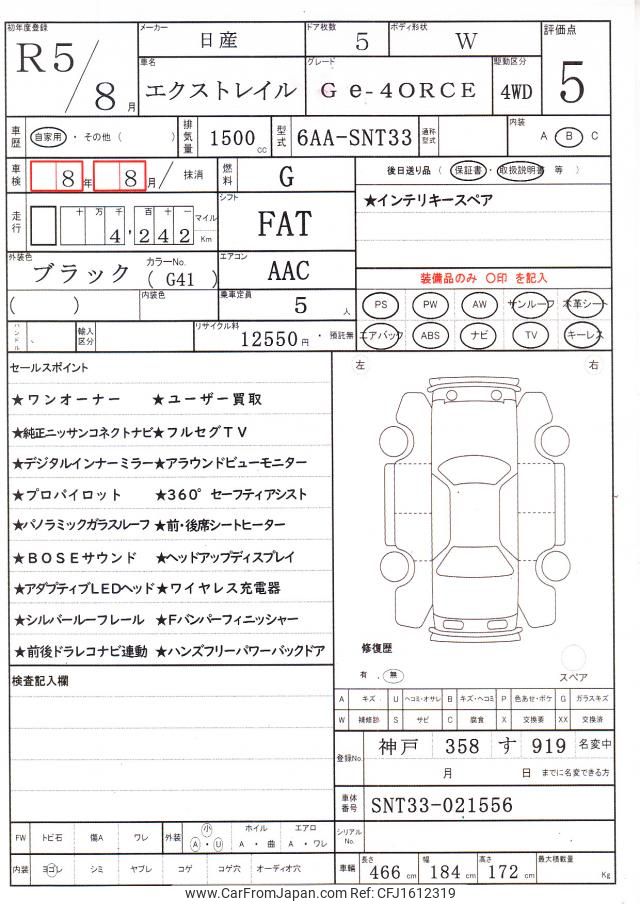 初年度登録 R5/8月
メーカー 日産
ドア枚数 5
ボディ形状 W
評価点 5
車名 エクストレイル
グレード G e-4ORCE
駆動区分 4WD
車歴 自家用 ・ その他 ( )
排気量 1500 cc
型式 6AA-SNT33
通称型式
内装 A ・ B C
車検 8年 8月 抹消
燃料 G
後日送り品 ( 保証書 ・ 取扱説明書 等 )
走行 十 万 千 百 十 一 マイル Km
4'242
シフト FAT
★インテリキースペア
外装色 ブラック
カラーNo. ( G41 )
エアコン AAC
装備品のみ ○印 を記入
( )
内装色
乗車定員 5 人
PS PW AW サンルーフ 本革シート
ハンドル
輸入区分
リサイクル料 12550円 ・ 預託無
エアバック ABS ナビ TV キーレス
セールスポイント
★ワンオーナー ★ユーザー買取
★純正ニッサンコネクトナビ★フルセグTV
★デジタルインナーミラー★アラウンドビューモニター
★プロパイロット ★360°セーフティアシスト
★パノラミックガラスルーフ★前・後席シートヒーター
★BOSEサウンド ★ヘッドアップディスプレイ
★アダプティブLEDヘッド★ワイヤレス充電器
★シルバールーフレール ★Fバンパーフィニッシャー
★前後ドラレコナビ連動 ★ハンズフリーパワーバックドア
左 右
修復歴
有 . 無
スペア
検査記入欄
A キズ U ヘコミ・オサレ B キズ・ヘコミ P 色あせ・ボケ G ガラスキズ
W 補修跡 S サビ C 腐食 X 交換要 XX 交換済
登録No. 神戸 358 す 919 名変中
月 日 までに名変できる方
車体番号 SNT33-021556
シリアルNo.
FW トビ石 傷A ワレ
外装 小 A ・ U
ホイル A ・ 曲
エアロ A ・ ワレ
内装 ヨゴレ シミ ヤブレ コゲ コゲ穴 オーディオ穴
車輌 長さ 466 cm 幅 184 cm 高さ 172 cm 最大積載量 Kg
www.CarFromJapan.com Ref: CFJ1612319